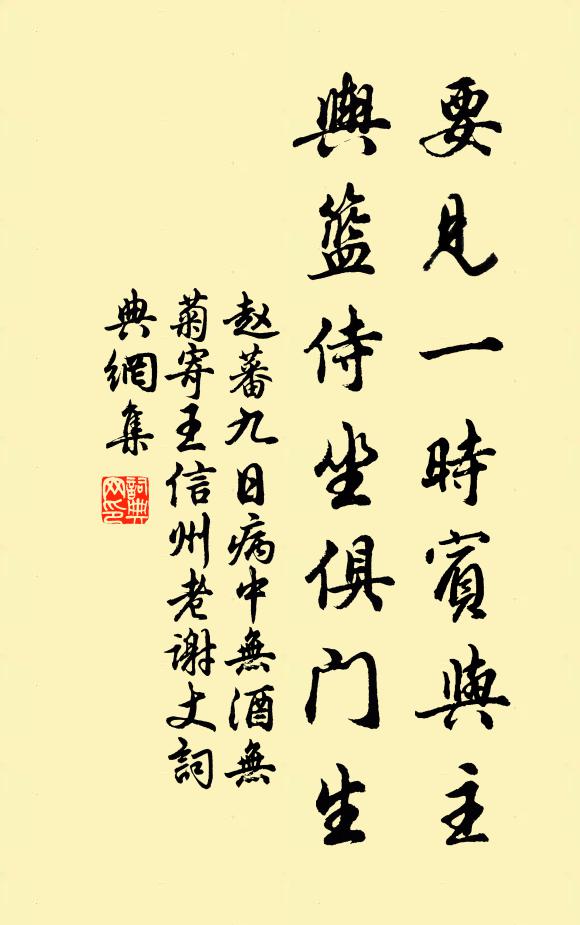 要見一時賓與主
輿籃侍坐俱門生
赵蕃九日病中無酒無
菊寄王信州老谢丈詞
典網集
詞典網印